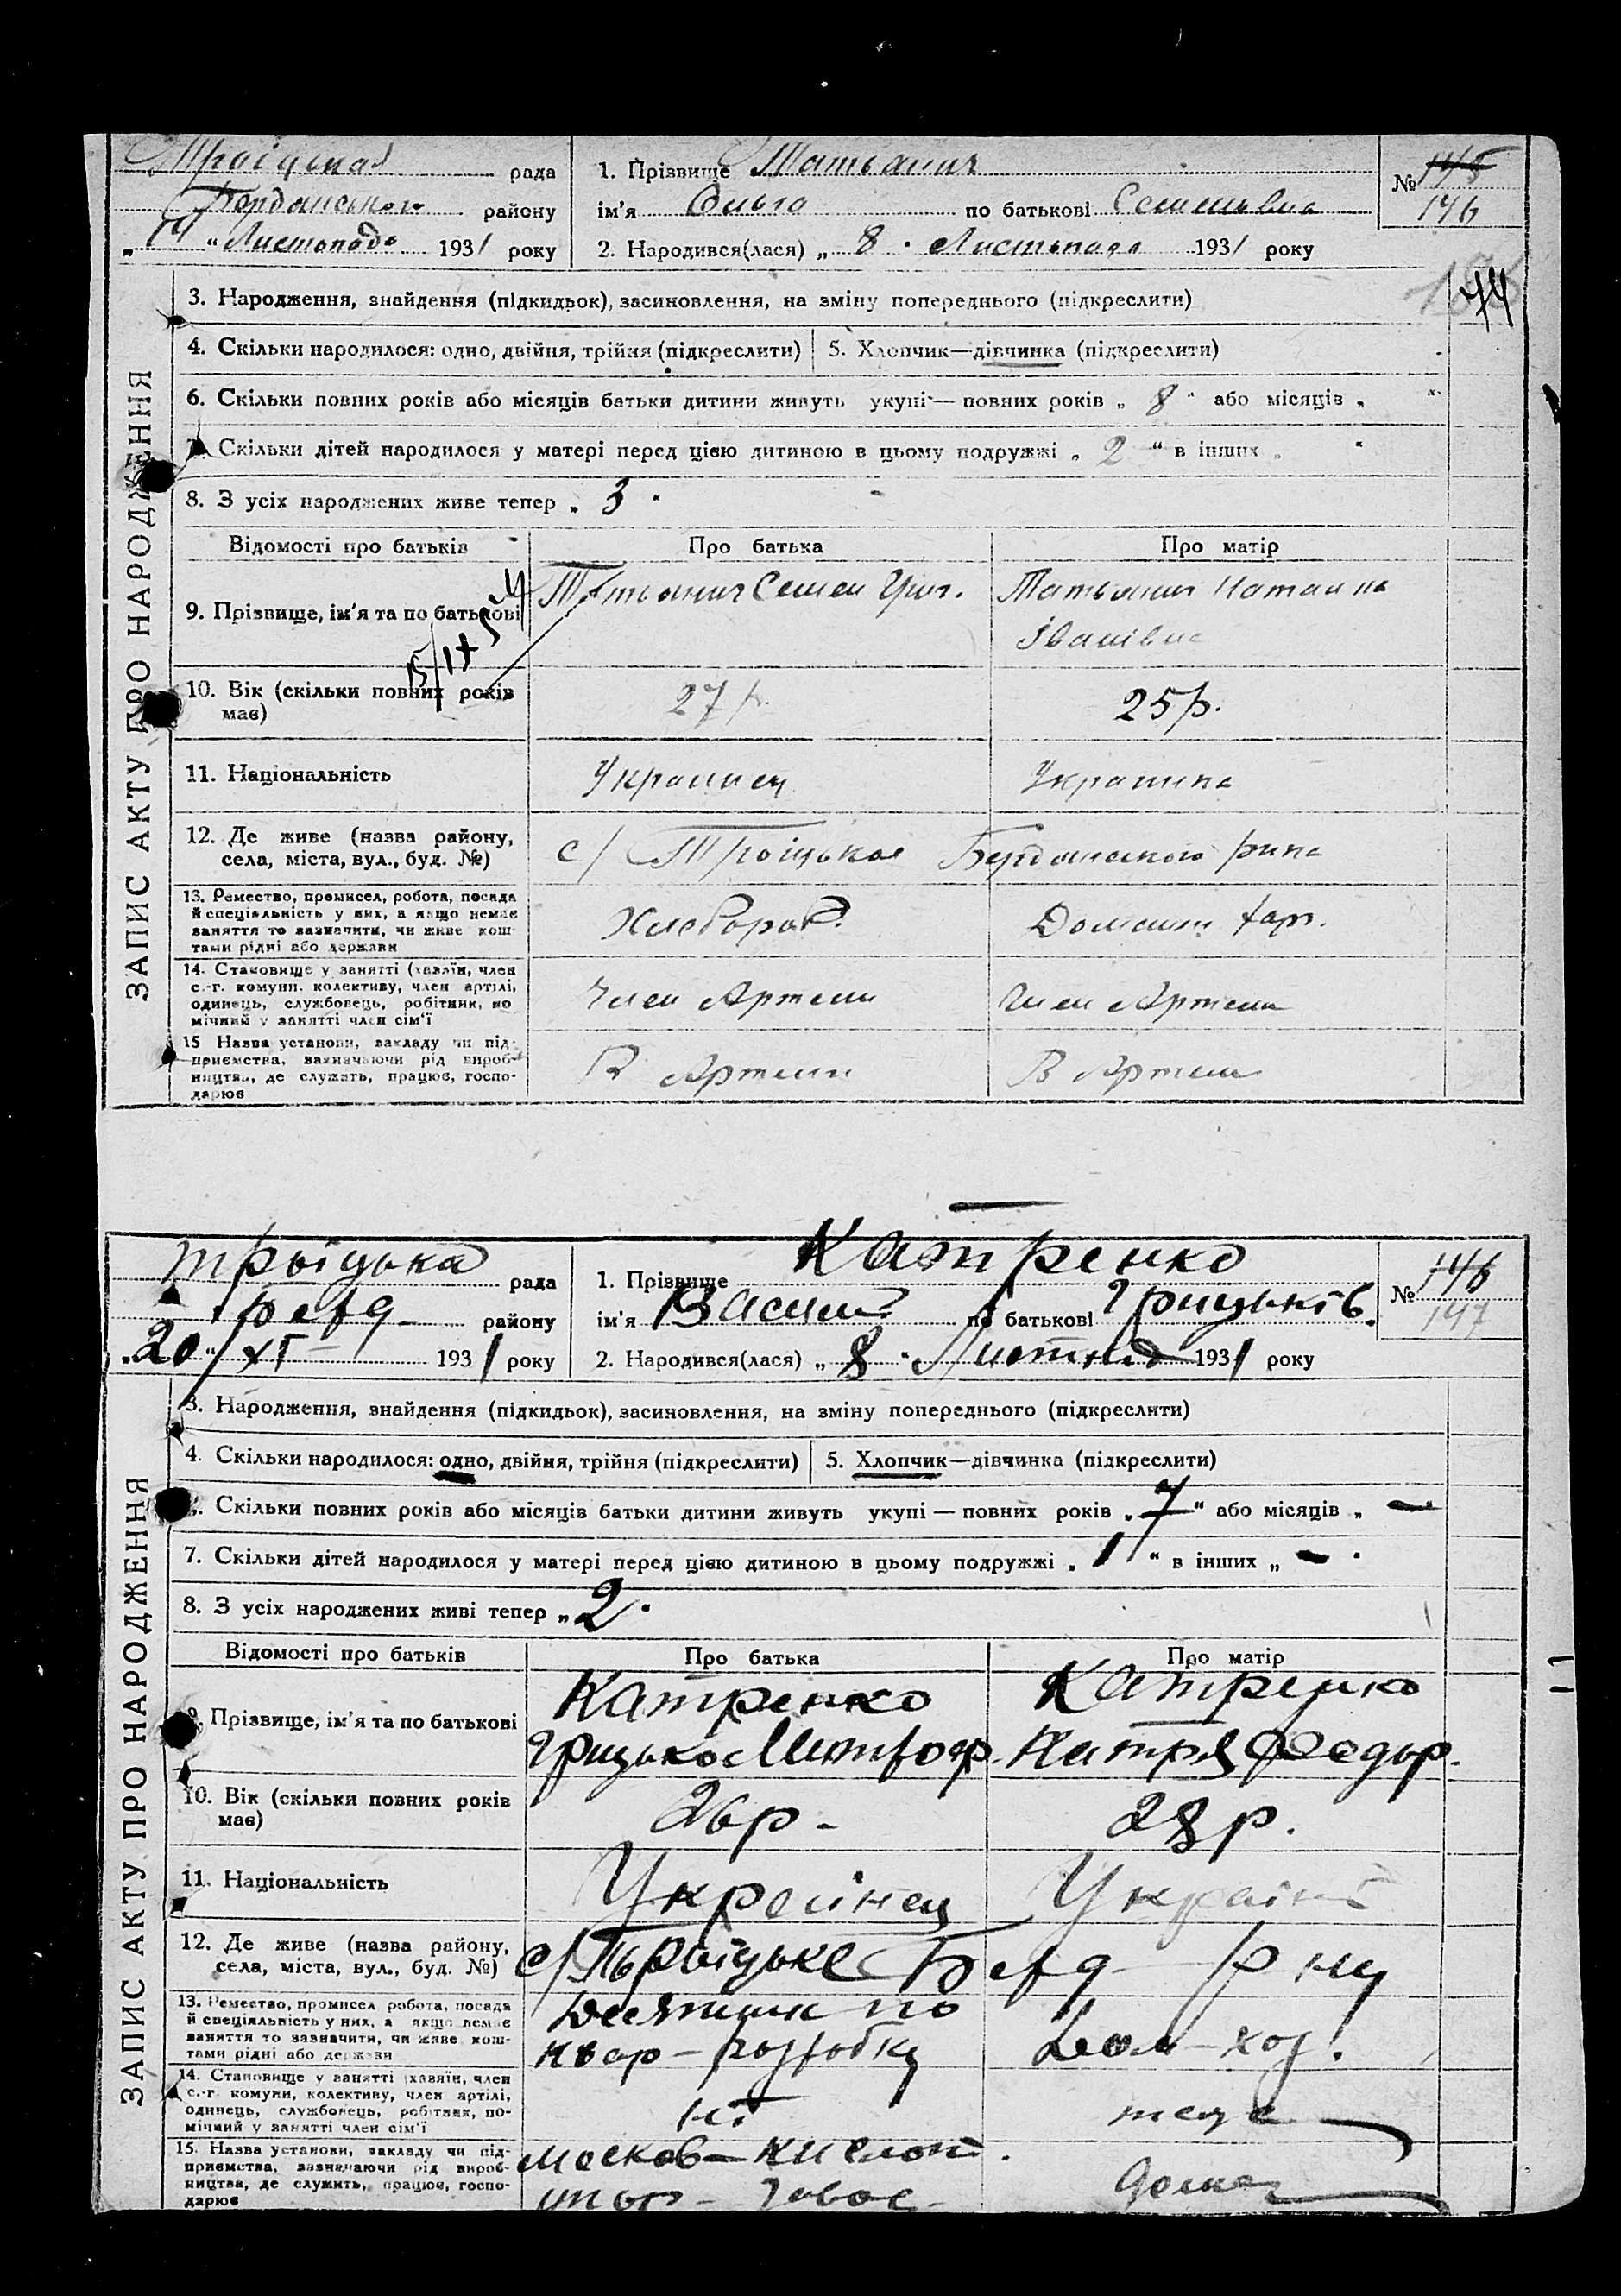 Троіцькая рада
Бердянського району
„14“ Листопада 1931 року
1. Прізвище Татьянич
ім'я Ольга по батькові Семеньвна
2. Народився(лася) „8“ Листопада 1931 року
№ 145
146
74
ЗАПИС АКТУ ПРО НАРОДЖЕННЯ
3. Народження, знайдення (підкидьок), засиновлення, на зміну попереднього (підкреслити)
4. Скільки народилося: одно, двійня, трійня (підкреслити) 5. Хлопчик—дівчинка (підкреслити)
6. Скільки повних років або місяців батьки дитини живуть укупі — повних років „8“ або місяців „ “
7. Скільки дітей народилося у матері перед цією дитиною в цьому подружжі „2“ в інших „
8. З усіх народжених живе тепер „3“
Відомості про батьків Про батька Про матір
9. Прізвище, ім'я та по батькові Татьянич Семен Григ. Татьянич Наталка
Іванівна
10. Вік (скільки повних років має) 27 р. 25 р.
11. Національність Украинец Украинка
12. Де живе (назва району, села, міста, вул., буд. №) с/ Троіцькое Бердянського р-на
13. Ремество, промисел, робота, посада
й спеціяльність у них, а якщо немає
заняття то зазначити, чи живе кош-
тами рідні або держави
Хлебороб. Домашн. хар.
14. Становище у занятті (хазяїн, член
с.-г. комуни, колективу, член артілі,
одинець, службовець, робітник, по
мічний у занятті член сім'ї
Член Артели Член Артели
15 Назва установи, закладу чи під-
приємства, зазначаючи рід вироб-
ництва, де служить, працює, госпо-
дарює
В Артели В Артели
Троіцька рада
Берд району
„20“ XI 1931 року
1. Прізвище Катренко
ім'я Василь по батькові Грицьків.
2. Народився(лася) „8“ Листопад 1931 року
№ 146
147
ЗАПИС АКТУ ПРО НАРОДЖЕННЯ
3. Народження, знайдення (підкидьок), засиновлення, на зміну попереднього (підкреслити)
4. Скільки народилося: одно, двійня, трійня (підкреслити) 5. Хлопчик—дівчинка (підкреслити)
Скільки повних років або місяців батьки дитини живуть укупі — повних років „7“ або місяців „—“
7. Скільки дітей народилося у матері перед цією дитиною в цьому подружжі „1“ в інших „—“
8. З усіх народжених живі тепер „2“
Відомості про батьків Про батька Про матір
9. Прізвище, ім'я та по батькові Катренко Катренко
Грицько Митроф. Катря Федор.
10. Вік (скільки повних років має) 26 р - 28 р.
11. Національність Українец Україн
12. Де живе (назва району, села, міста, вул., буд. №) с/ Троіцьке Берд р ну
13. Ремество, промисел робота, посада
й спеціяльність у них, а якщо немає
заняття то зазначити, чи живе кош-
тами рідні або держави
Десятник по
квар- розробки Дом-хоз.
14. Становище у занятті (хазяїн, член
с.-г. комуни, колективу, член артілі,
одинець, службовець, робітник, по-
мічний у занятті член сім'ї
15. Назва установи, закладу чи під-
приємства, зазначаючи рід вироб-
ництва, де служить, працює, госпо-
дарює
дома